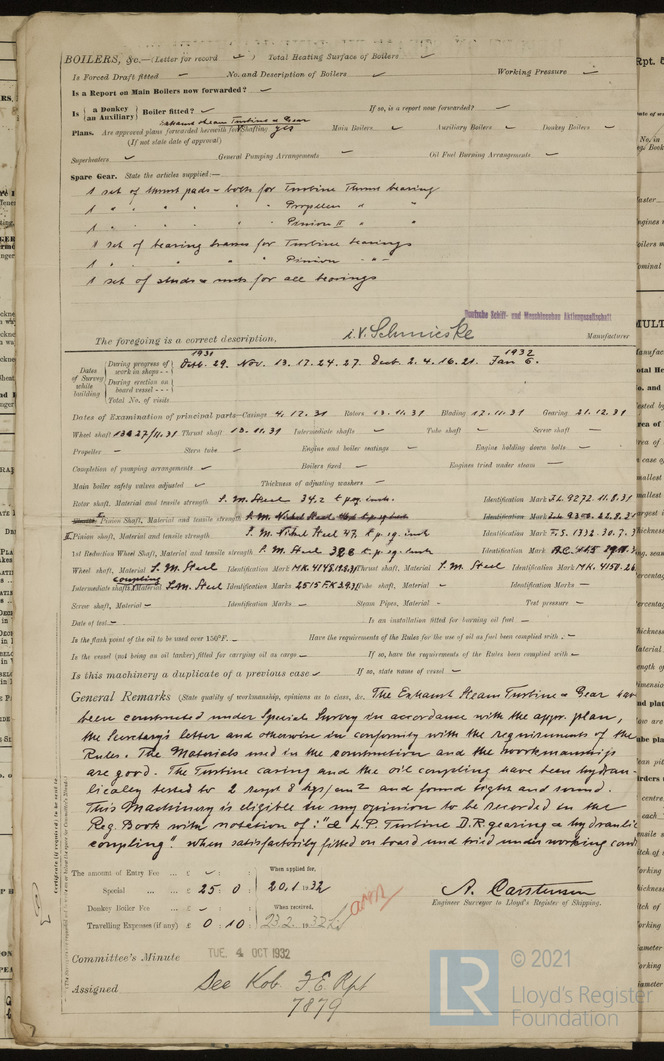 BOILERS, &c.—(Letter for record ✓ ) Total Heating Surface of Boilers ✓
Is Forced Draft fitted – No. and Description of Boilers ✓ Working Pressure –
Is a Report on Main Boilers now forwarded? ✓
Is { a Donkey / an Auxiliary } Boiler fitted? ✓ If so, is a report now forwarded? ✓
Exhaust steam Turbine & Gear
Plans. Are approved plans forwarded herewith for Shafting yes Main Boilers ✓ Auxiliary Boilers ✓ Donkey Boilers ✓
(If not state date of approval)
Superheaters ✓ General Pumping Arrangements – Oil Fuel Burning Arrangements –
Spare Gear. State the articles supplied:—
1 set of thrust pads & bolts for Turbine Thrust bearing
1 " " " " " " Propeller " "
1 " " " " " " Pinion II " "
1 set of bearing brasses for Turbine bearings
1 " " " " " Pinion " "
1 set of studs & nuts for all bearings
Deutsche Schiff- und Maschinenbau Aktiengesellschaft
The foregoing is a correct description, i.V. Schmieske Manufacturer
1931 1932
Dates of Survey while building
During progress of work in shops - - Octb. 29. Nov. 13. 17. 24. 27. Decb. 2. 4. 16. 21. Jan 6.
During erection on board vessel - - -
Total No. of visits
Dates of Examination of principal parts—Casings 4.12.31 Rotors 13.11.31 Blading 17.11.31 Gearing 21.12.31
Wheel shaft 27/11.31 Thrust shaft 13.11.31 Intermediate shafts – Tube shaft – Screw shaft –
Propeller – Stern tube – Engine and boiler seatings – Engine holding down bolts –
Completion of pumping arrangements ✓ Boilers fixed – Engines tried under steam –
Main boiler safety valves adjusted ✓ Thickness of adjusting washers –
Rotor shaft, Material and tensile strength S.M. Steel 34.2 t. p. sq. inch. Identification Mark 9272 11.8.31
Pinion Shaft, Material and tensile strength S.M. Nickel Steel Identification Mark 22.8.31
II Pinion shaft, Material and tensile strength S.M. Nickel Steel 47. t. p. sq. inch Identification Mark F.S. 1332. 30.7.3
1st Reduction Wheel Shaft, Material and tensile strength S.M. Steel t. p. sq. inch Identification Mark
Wheel shaft, Material S.M. Steel Identification Mark Thrust shaft, Material S.M. Steel Identification Mark MK. 4150.26
coupling
Intermediate shafts, Material S.M. Steel Identification Marks 2515 FK 3.9.31 Tube shaft, Material – Identification Marks –
Screw shaft, Material – Identification Marks – Steam Pipes, Material – Test pressure –
Date of test – Is an installation fitted for burning oil fuel –
Is the flash point of the oil to be used over 150°F. – Have the requirements of the Rules for the use of oil as fuel been complied with –
Is the vessel (not being an oil tanker) fitted for carrying oil as cargo – If so, have the requirements of the Rules been complied with –
Is this machinery a duplicate of a previous case ✓ If so, state name of vessel –
General Remarks (State quality of workmanship, opinions as to class, &c. The Exhaust Steam Turbine & Gear have
been constructed under Special Survey in accordance with the appr. plan,
the Secretary's letter and otherwise in conformity with the requirements of the
Rules. The Materials used in the construction and the workmanship
are good. The Turbine casing and the oil coupling have been hydrau-
lically tested to 2 resp 8 kgs/cm² and found tight and sound.
This Machinery is eligible in my opinion to be recorded in the
Reg. Book with notation of: "& L.P. Turbine D.R. gearing & hydraulic
coupling" when satisfactorily fitted on board and tried under working cond
The amount of Entry Fee ... £ – : : When applied for,
Special ... ... £ 25 : 0 : 20.1.1932
Donkey Boiler Fee ... £ – : : When received,
Travelling Expenses (if any) £ 0 : 10 : 23.2.1932
A. Carstensen
Engineer Surveyor to Lloyd's Register of Shipping.
Committee's Minute TUE. 4 OCT 1932
Assigned See Kob. F.E. Rpt
7879
© 2021
LR Lloyd's Register
Foundation